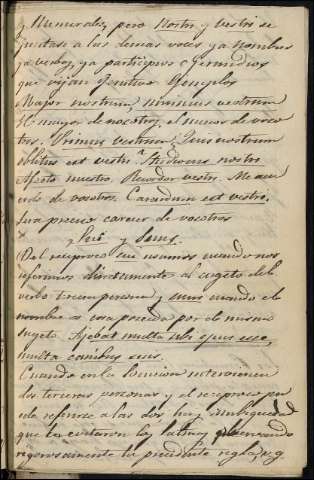 y Numerales, pero Nostri y vestri se
juntase a las demas voces ya nombres
ya verbos, ya participios o Gerundios
que rijan Genitivo Exemplos
Major nostrum, minimus vestrum
El mayor de nosotros, el menor de voso
tros. Primus vestrum, Quis nostrum
oblitus est vestri. Studiosus nostri
Afecto nuestro. Recordor vestri. Me acu
erdo de vosotros. Carendum est vestri.
Sera preciso carecer de vosotros
Sui y Suus.
Del reciproco sui usamos cuando nos
referimos directamente al sugeto del
verbo y suus cuando el
nombre o cosa poseida por el mismo
sugeto. Ajebat multa sibi opus esse,
multa canibus suis.
Cuando en la locucion intervienen
dos terceras personas y el reciproco pue
de referirse a las dos, hay ambiguedad
que la evitaron los latinos observando
rigorosamente la precedente regla, v. g.